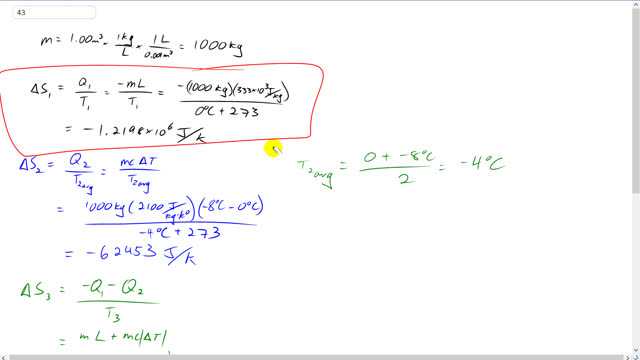 43
m = 1.00m³ · 1kg/L · 1L/0.001m³ = 1000kg
ΔS₁ = Q₁/T₁ = -mL/T₁ = -(1000kg)(333×10³ J/kg)/(0°C + 273)
= -1.2198×10⁶ J/K
ΔS₂ = Q₂/T₂avg = mcΔT/T₂avg
T₂avg = (0 + -8°C)/2 = -4°C
= 1000kg(2100 J/kg·K°)(-8°C - 0°C)/(-4°C + 273)
= -62453 J/K
ΔS₃ = (-Q₁ - Q₂)/T₃
= mL + mc|ΔT|